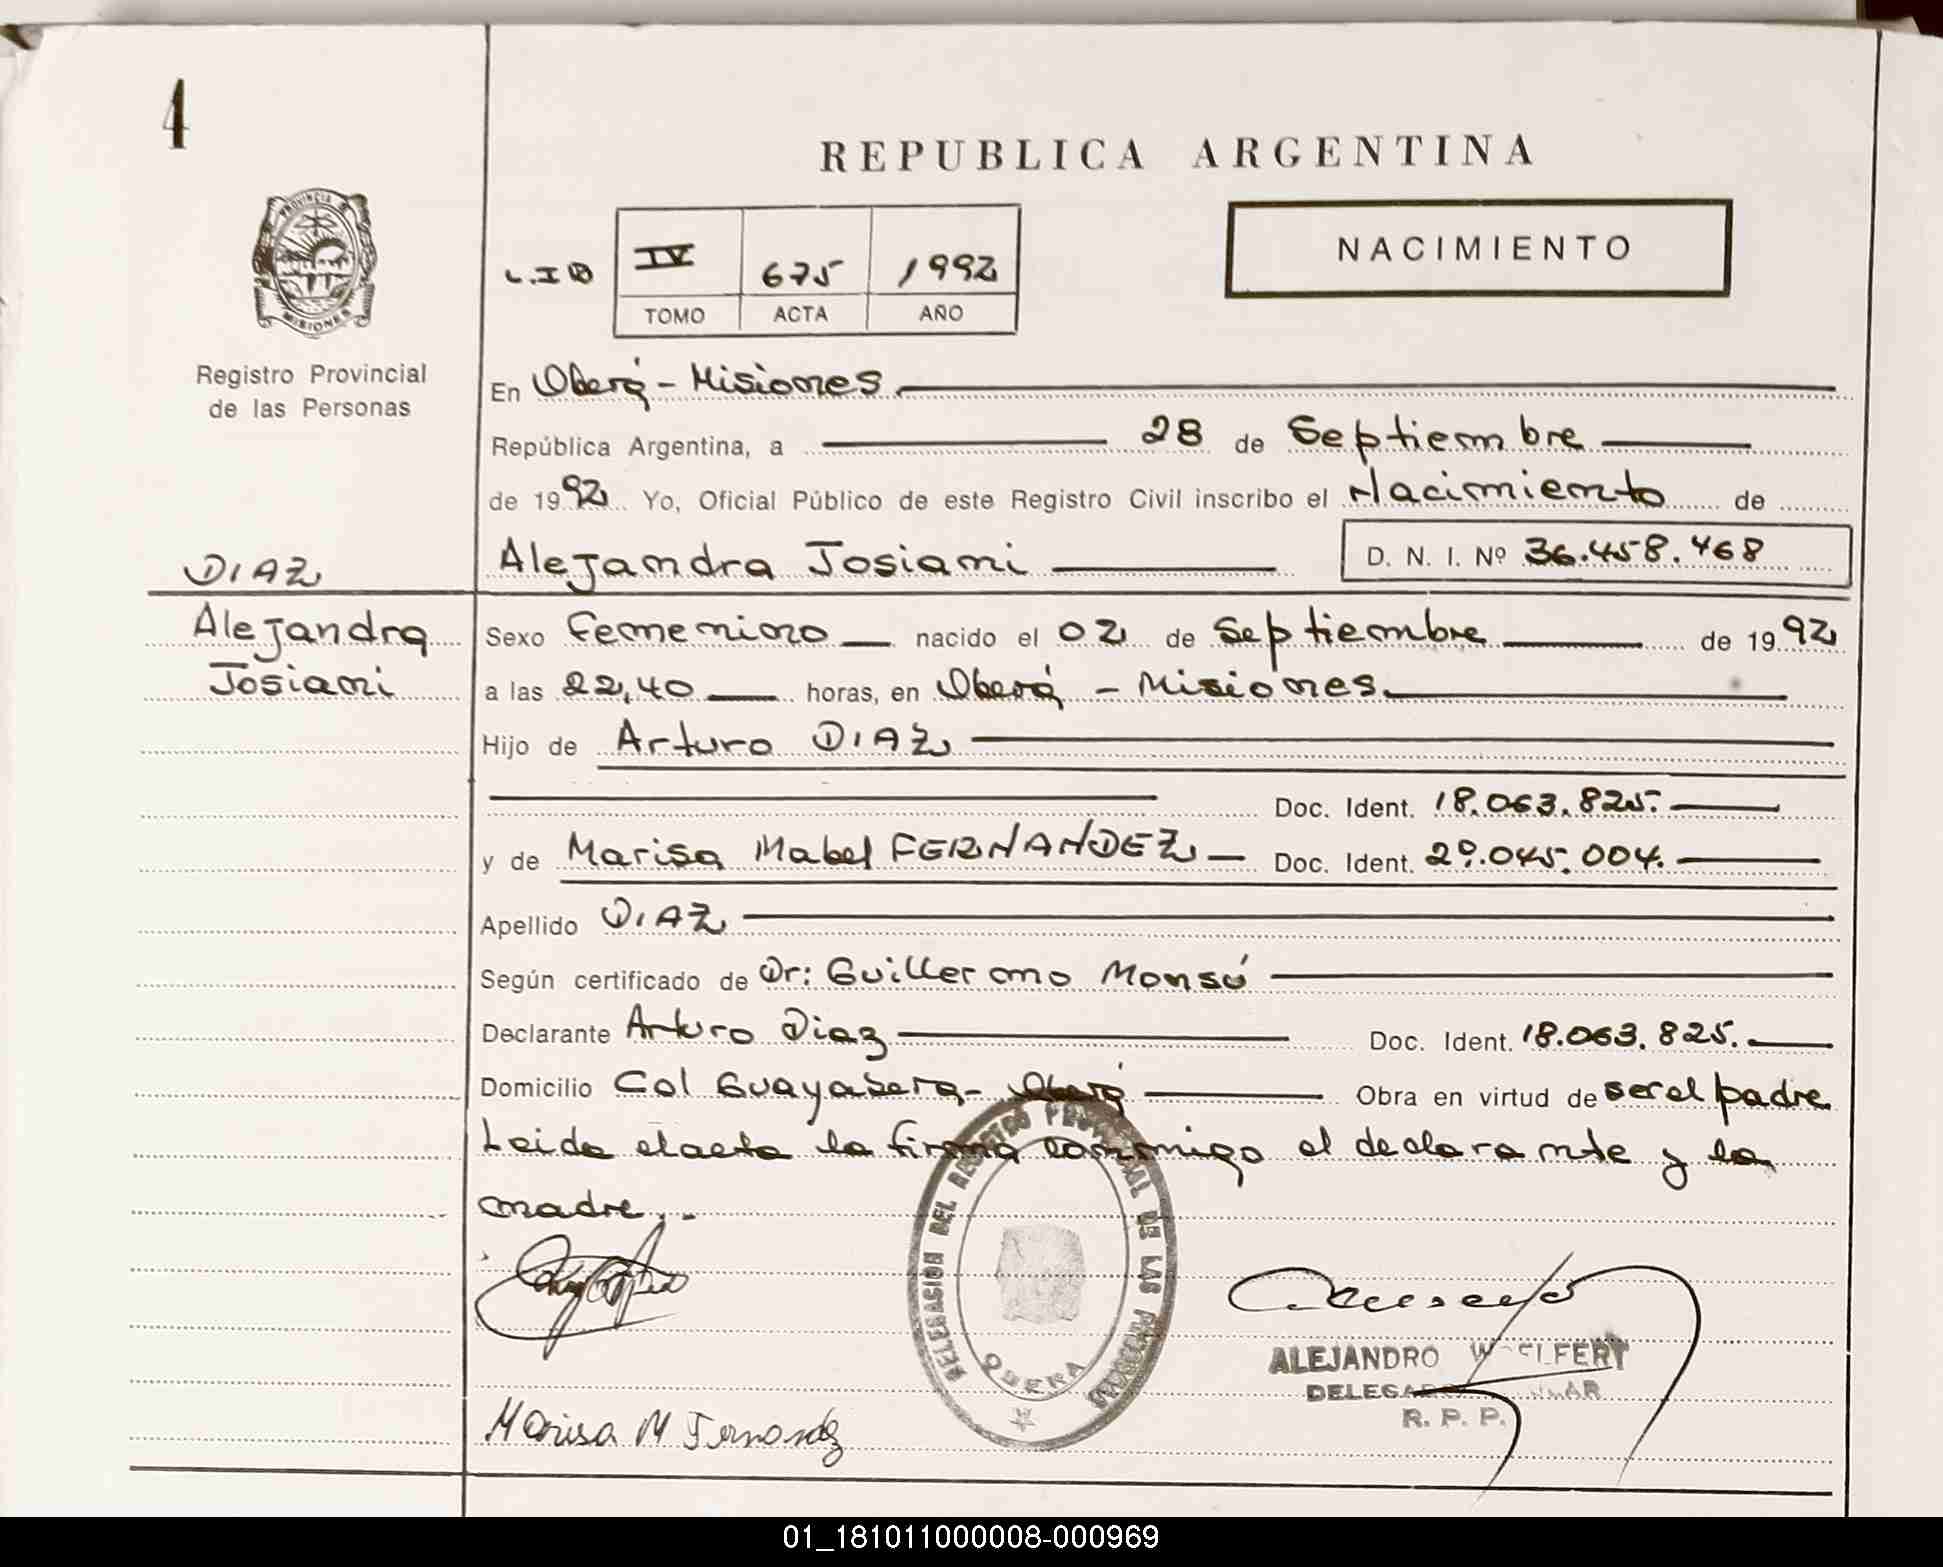 4
REPUBLICA ARGENTINA
PROVINCIA DE
MISIONES
NACIMIENTO
IV 675 1992
TOMO ACTA AÑO
Registro Provincial
de las Personas
En Oberá - Misiones
República Argentina, a 28 de Septiembre
de 1992 Yo, Oficial Público de este Registro Civil inscribo el Nacimiento de
DIAZ Alejandra Josiani D. N. I. Nº 36.458.468
Alejandra Sexo Femenino nacido el 02 de Septiembre de 1992
Josiani a las 22,40 horas, en Oberá - Misiones
Hijo de Arturo DIAZ
Doc. Ident. 18.063.825.
y de Marisa Mabel FERNANDEZ Doc. Ident. 29.045.004.
Apellido DIAZ
Según certificado de Dr: Guillermo Monsú
Declarante Arturo Diaz Doc. Ident. 18.063.825.
Domicilio Col Guayabera - Oberá Obra en virtud de ser el padre
Leida el acta la firma conmigo el declarante y la
madre..
DELEGACION DEL REGISTRO PROVINCIAL DE LAS PERSONAS
OBERA
ALEJANDRO
R. P. P.
Marisa M Fernandez
01_181011000008-000969